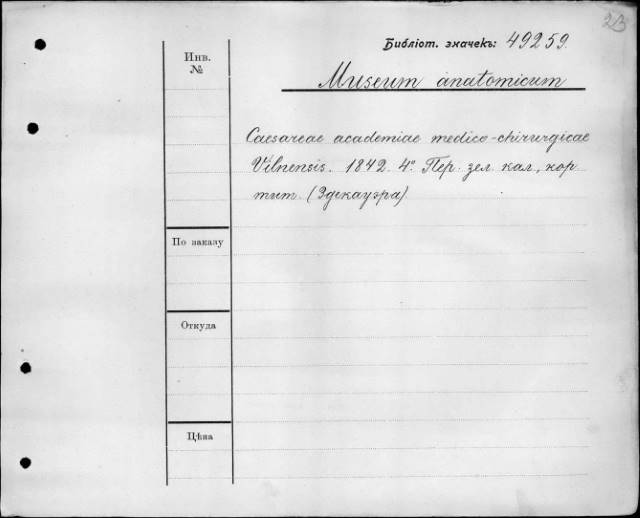 23
Библіот. значекъ: 49259.
Инв.
№
Museum anatomicum
Caesareae academiae medico-chirurgicae
Vilnensis. 1842. 4°. Пер. зел. кал., кор
тит. (Эдекауэра).
По заказу
Откуда
Цѣна